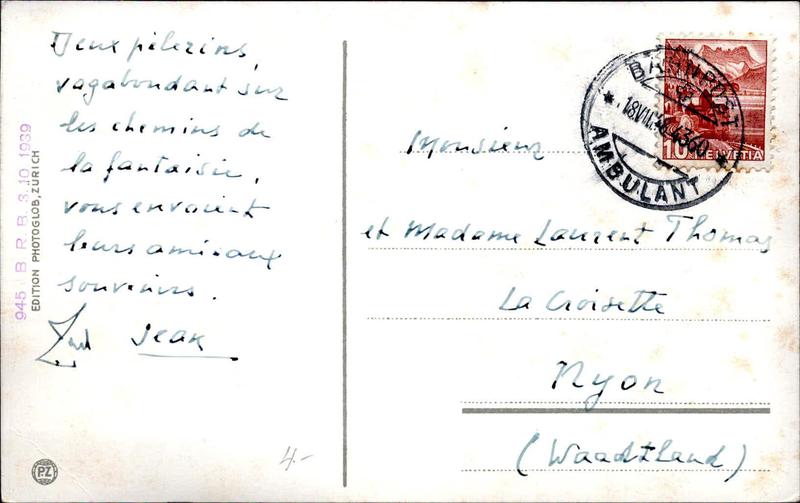 Deux pèlerins,
vagabondant sur
les chemins de
la fantaisie,
vous envoient
leurs amicaux
souvenirs.
Jean
945 B. R. B. 3.10 1939
EDITION PHOTOGLOB, ZURICH
PZ
4.-
BAHNPOST
AMBULANT
10 HELVETIA
Monsieur
et Madame Laurent Thomas
La Croisette
Nyon
(Waadtland)